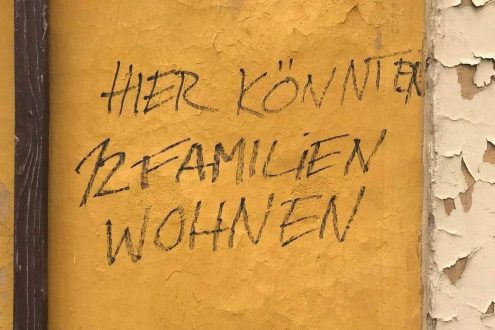 HIER KÖNNTEN
12 FAMILIEN
WOHNEN